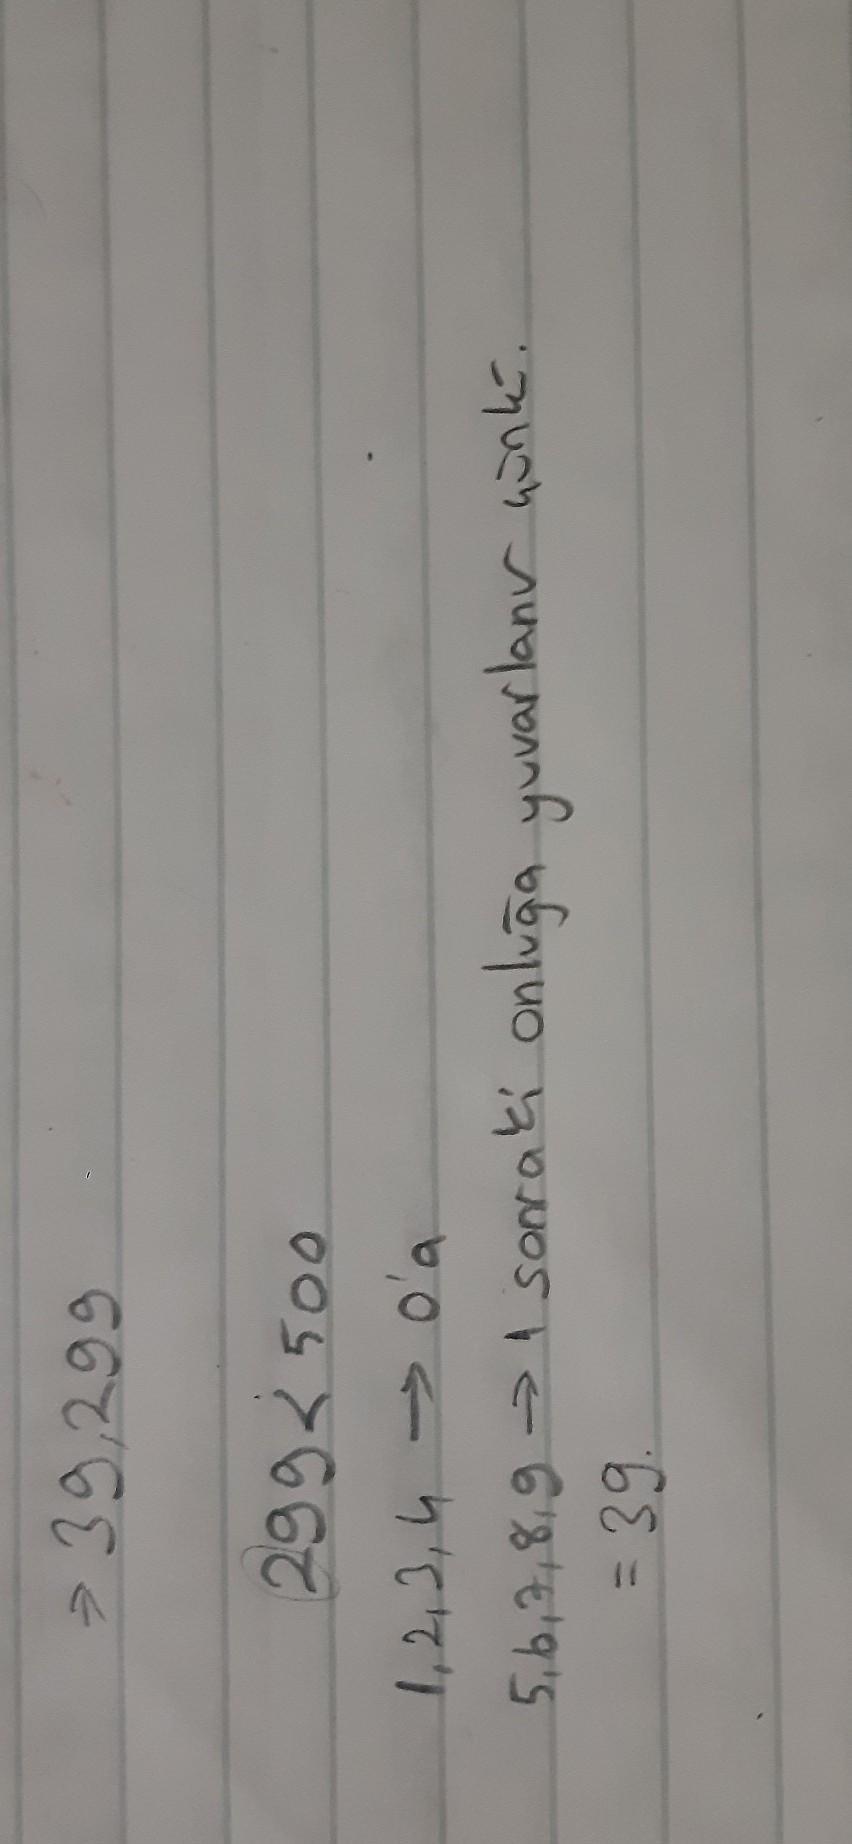 ⇒ 39,299
299 < 500
1,2,3,4 → 0'a
5,6,7,8,9 → 1 sonraki onluğa yuvarlanır çünkü.
= 39.